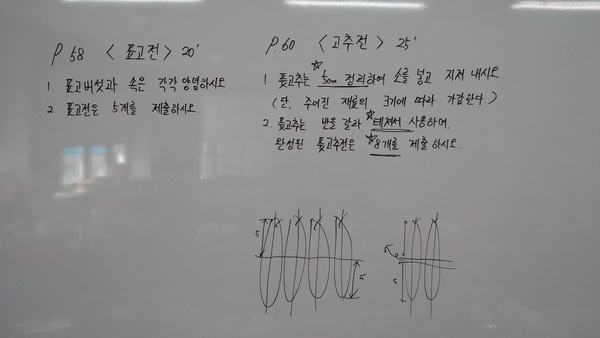 P.58 <표고전> 20'
1. 표고버섯과 속은 각각 양념하시오.
2. 표고전은 5개를 제출하시오.
P.60 <고추전> 25'
1. 풋고추는 ☆5cm 정리하여 소를 넣고 지져 내시오.
(단, 주어진 재료의 크기에 따라 가감한다.)
2. 풋고추는 반을 갈라 ☆데쳐서 사용하며,
완성된 풋고추전은 ☆8개를 제출하시오.
5
5
5